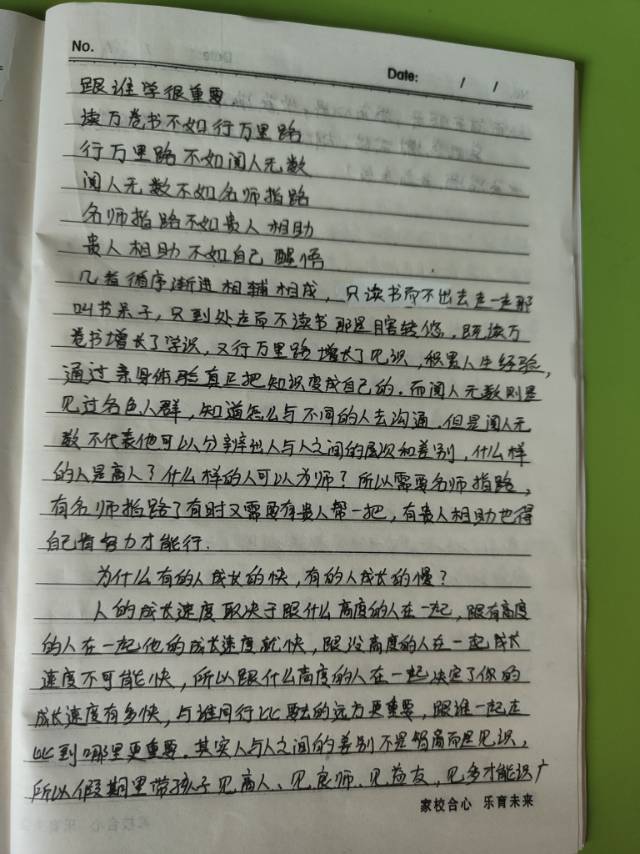 No.
Date: / /
跟谁学很重要
读万卷书不如行万里路
行万里路不如阅人无数
阅人无数不如名师指路
名师指路不如贵人相助
贵人相助不如自己醒悟
几者循序渐进相辅相成，只读书而不出去走一走那
叫书呆子，只到处走而不读书那是瞎转悠，既读万
卷书增长了学识，又行万里路增长了见识，积累人生经验，
通过亲身体验真正把知识变成自己的。而阅人无数则是
见过各色人群，知道怎么与不同的人去沟通，但是阅人无
数不代表他可以分辨出人与人之间的层次和差别，什么样
的人是高人？什么样的人可以为师？所以需要名师指路，
有名师指路了有时又需要有贵人帮一把，有贵人相助也得
自己肯努力才能行.
为什么有的人成长的快，有的人成长的慢？
人的成长速度取决于跟什么高度的人在一起，跟有高度
的人在一起他的成长速度就快，跟没高度的人在一起成长
速度不可能快，所以跟什么高度的人在一起决定了你的
成长速度有多快，与谁同行比要去的远方更重要，跟谁一起走
比到哪里更重要。其实人与人之间的差别不是智商而是见识，
所以假期里带孩子见高人、见良师、见益友，见多才能识广
家校合心 乐育未来